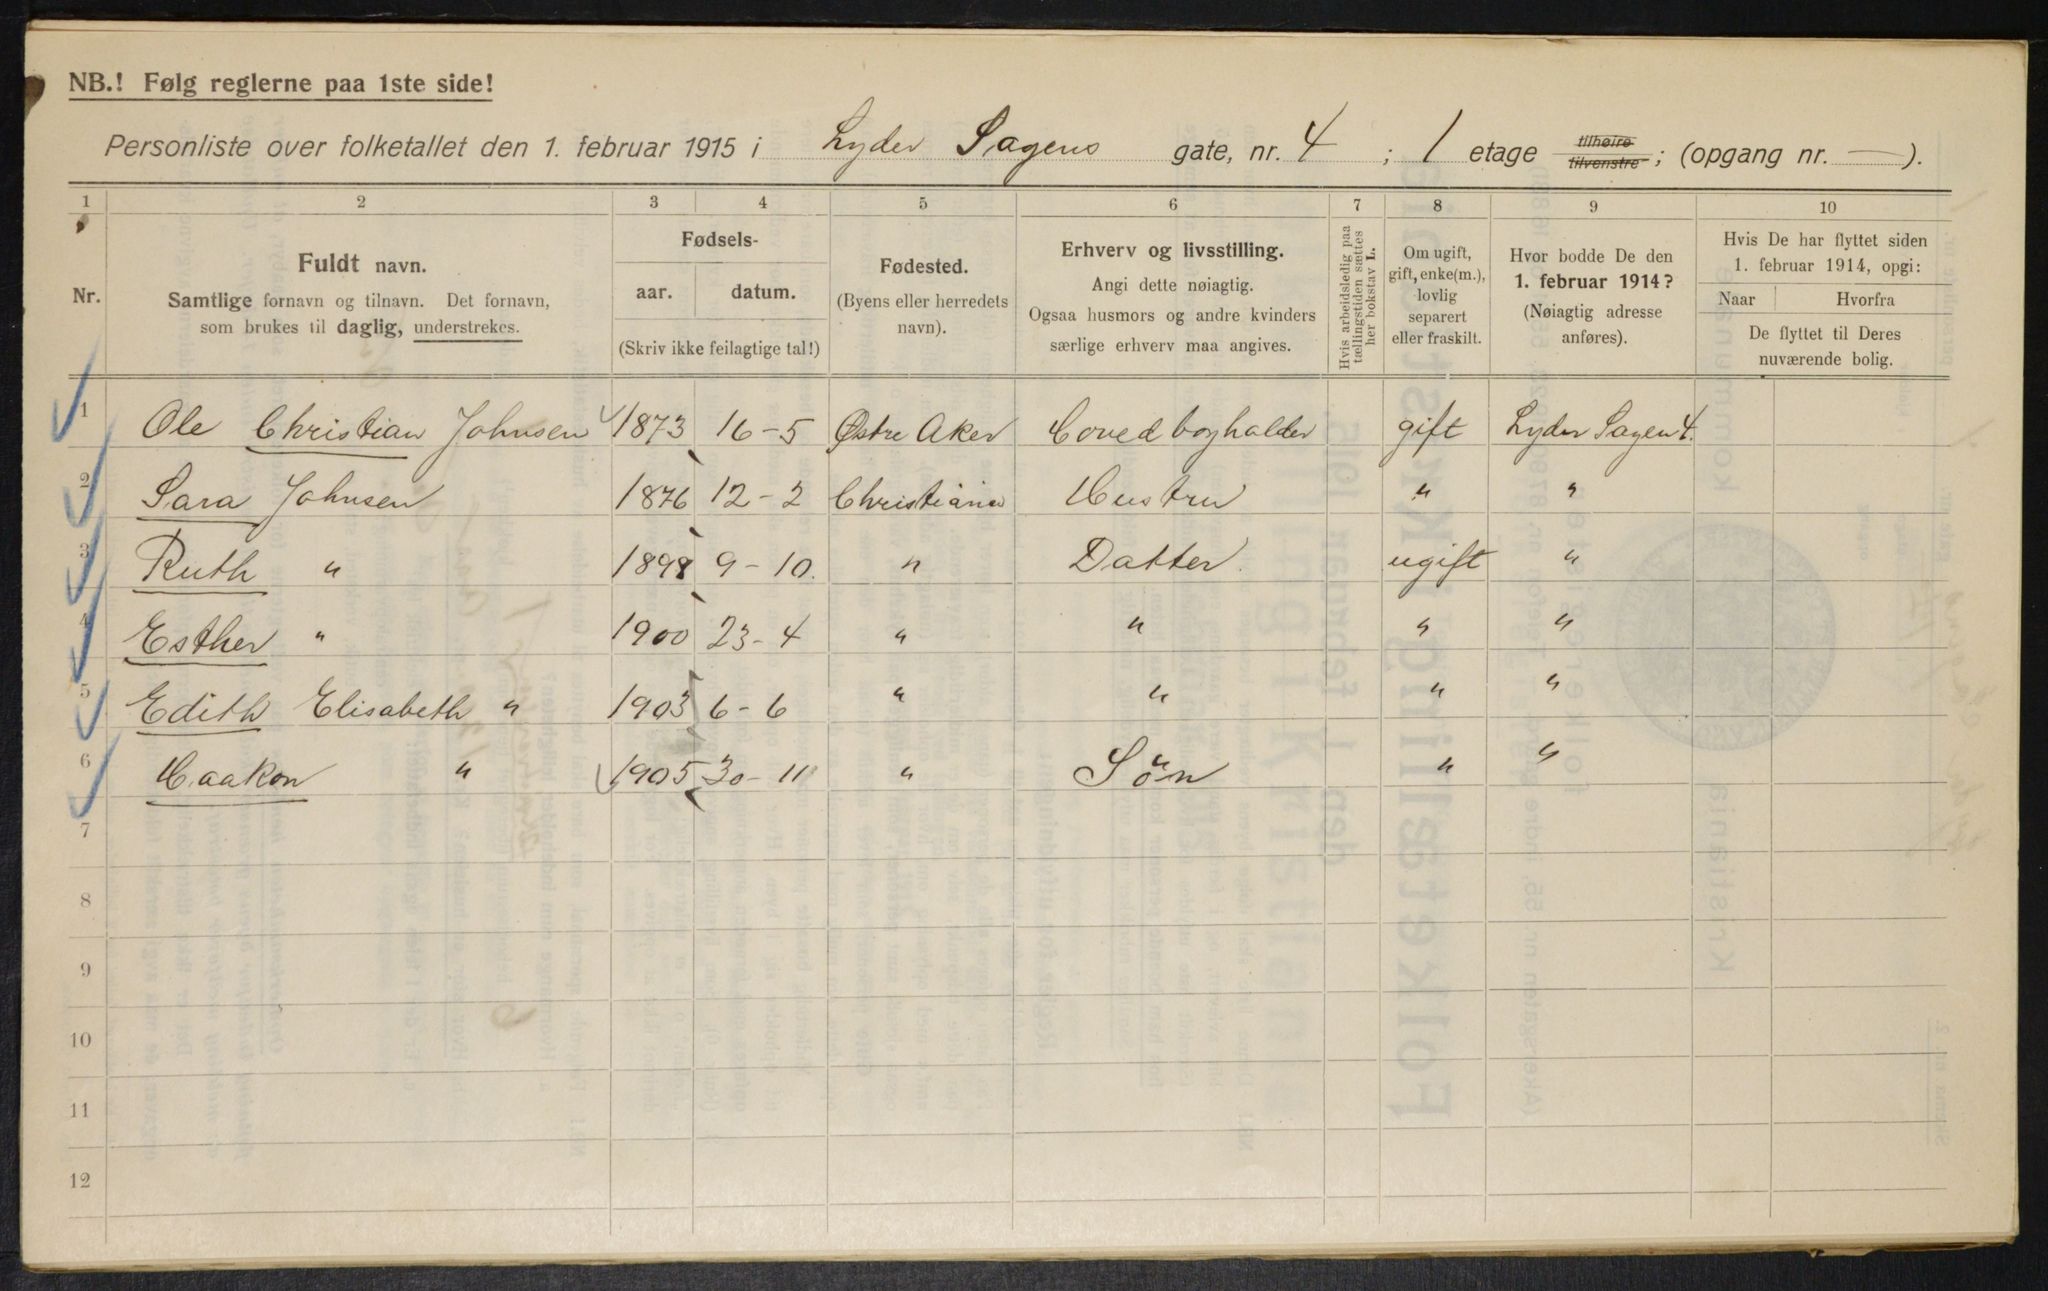 NB.! Følg reglerne paa 1ste side!
Personliste over folketallet den 1. februar 1915 i Lyder Sagens gate, nr. 4 ; 1 etage tilhøire tilvenstre ; (opgang nr. — ).
1 2 3 4 5 6 7 8 9 10
Nr.
Fuldt navn.
Samtlige fornavn og tilnavn. Det fornavn,
som brukes til daglig, understrekes.
Fødsels-
aar. datum.
(Skriv ikke feilagtige tal!)
Fødested.
(Byens eller herredets
navn).
Erhverv og livsstilling.
Angi dette nøiagtig.
Ogsaa husmors og andre kvinders
særlige erhverv maa angives.
Hvis arbeidsledig paa
tællingstiden sættes
her bokstav L.
Om ugift,
gift, enke(m.),
lovlig
separert
eller fraskilt.
Hvor bodde De den
1. februar 1914?
(Nøiagtig adresse
anføres).
Hvis De har flyttet siden
1. februar 1914, opgi:
Naar Hvorfra
De flyttet til Deres
nuværende bolig.
1 Ole Christian Johnsen 1873 16-5 Østre Aker Hovedboghalder gift Lyder Sagen 4.
2 Sara Johnsen 1876 12-2 Christiania Hustru " "
3 Ruth " 9-10. " Datter. ugift "
4 Esther " 1900 23-4 " " " "
5 Edith Elisabeth " 1903 6-6 " " " "
6 Haakon " 1905 30-11 " Søn " "
7
8
9
10
11
12